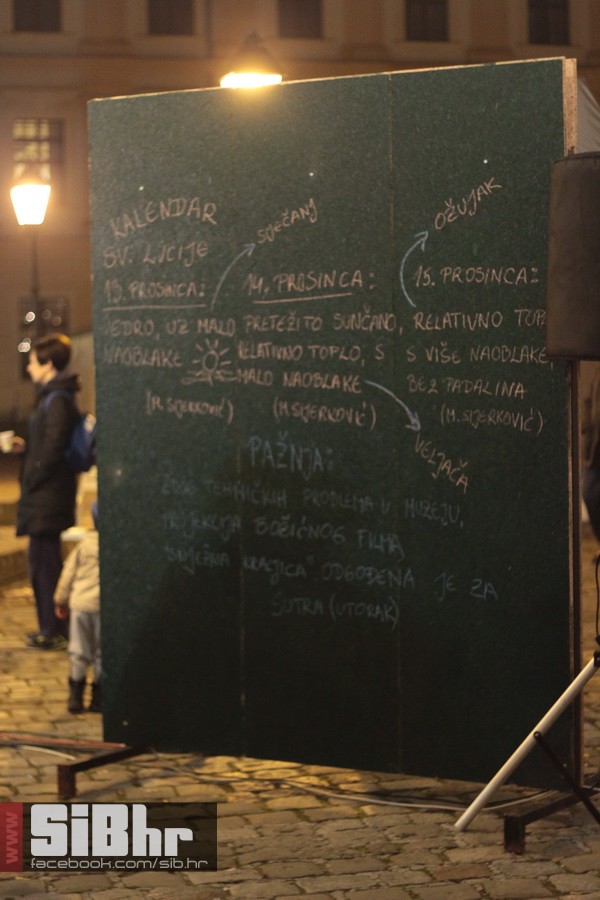 KALENDAR
SV. LUCIJE
13. PROSINCA:
VEDRO, UZ MALO
NAOBLAKE
(M. SIJERKOVIĆ)
SIJEČANJ
14. PROSINCA:
PRETEŽITO SUNČANO,
RELATIVNO TOPLO, S
MALO NAOBLAKE
(M. SIJERKOVIĆ)
VELJAČA
OŽUJAK
15. PROSINCA:
RELATIVNO TOP
S VIŠE NAOBLAKE,
BEZ PADALINA
(M. SIJERKOVIĆ)
PAŽNJA:
ZBOG TEHNIČKIH PROBLEMA U MUZEJU,
PROJEKCIJA BOŽIĆNOG FILMA
"SNJEŽNA KRALJICA" ODGOĐENA JE ZA
SUTRA (UTORAK)
www
SiBhr
facebook.com/sib.hr